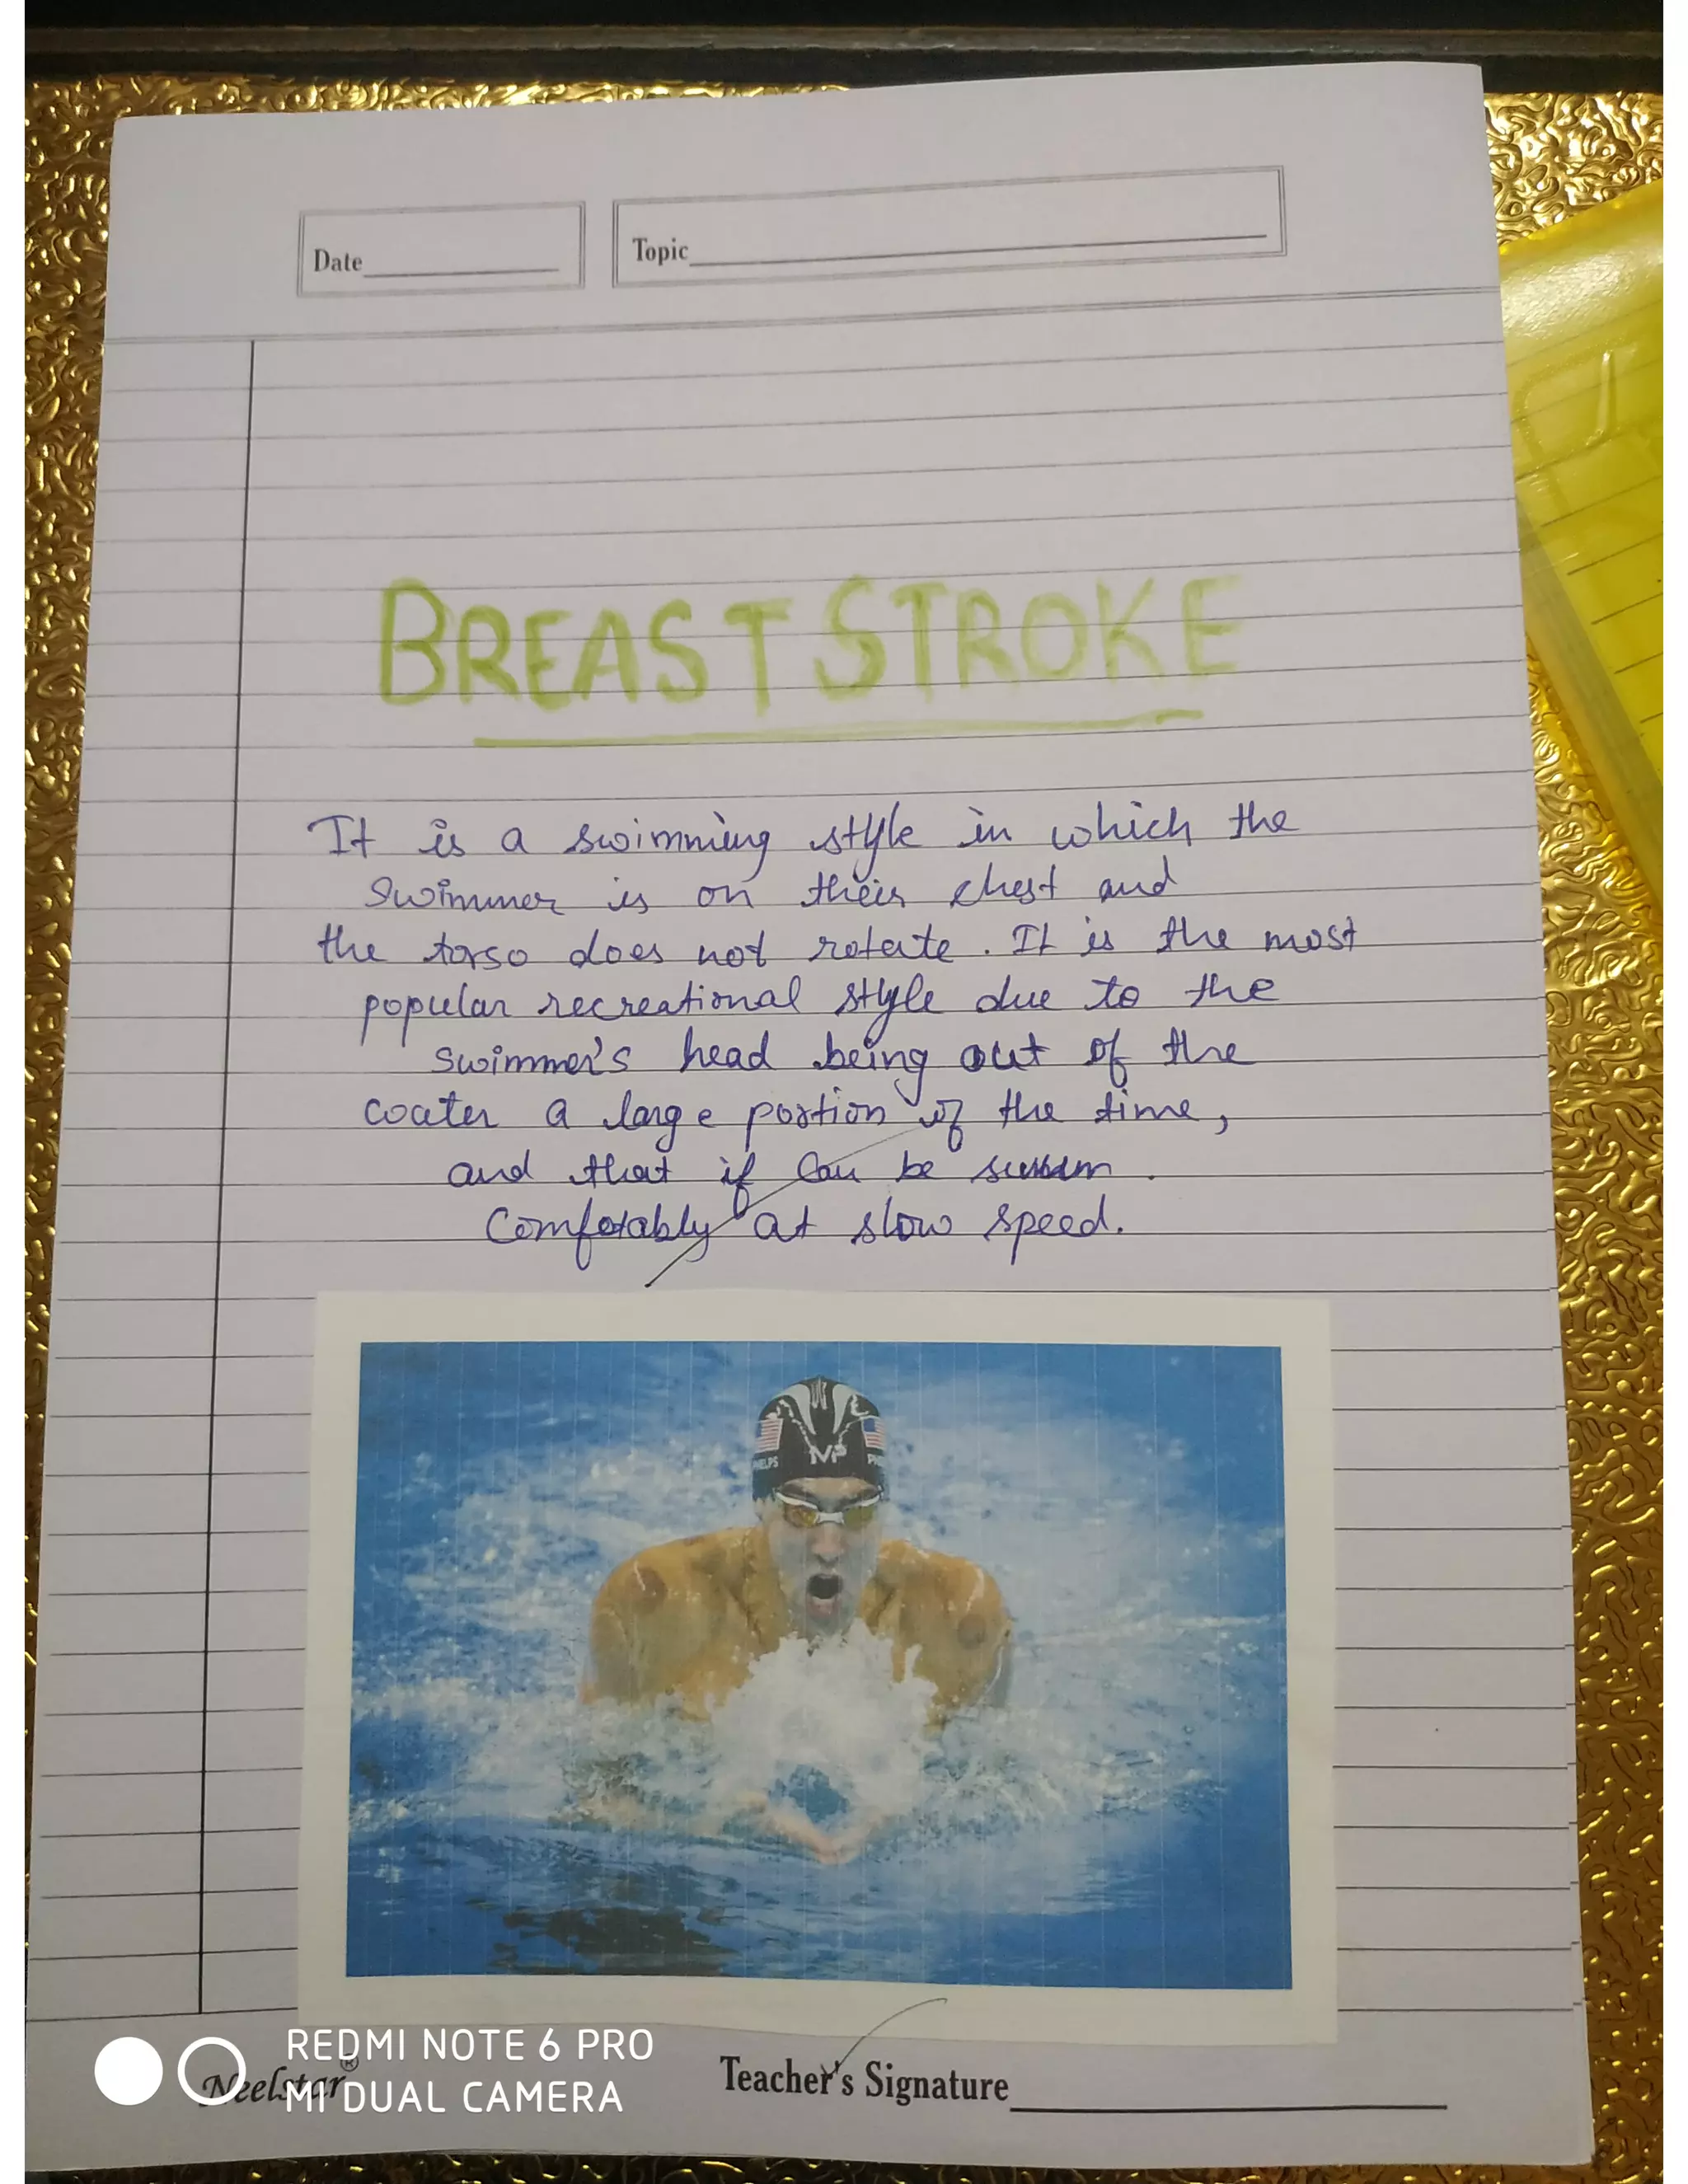 Date
Topic
BREAST STROKE
It is a swimming style in which the
swimmer is on their chest and
the torso does not rotate. It is the most
popular recreational style due to the
swimmer's head being out of the
water a large portion of the time,
and that if can be swum.
Comfotably at slow speed.
MP
PHELPS
PH
Neelstar®
REDMI NOTE 6 PRO
MI DUAL CAMERA
Teacher's Signature